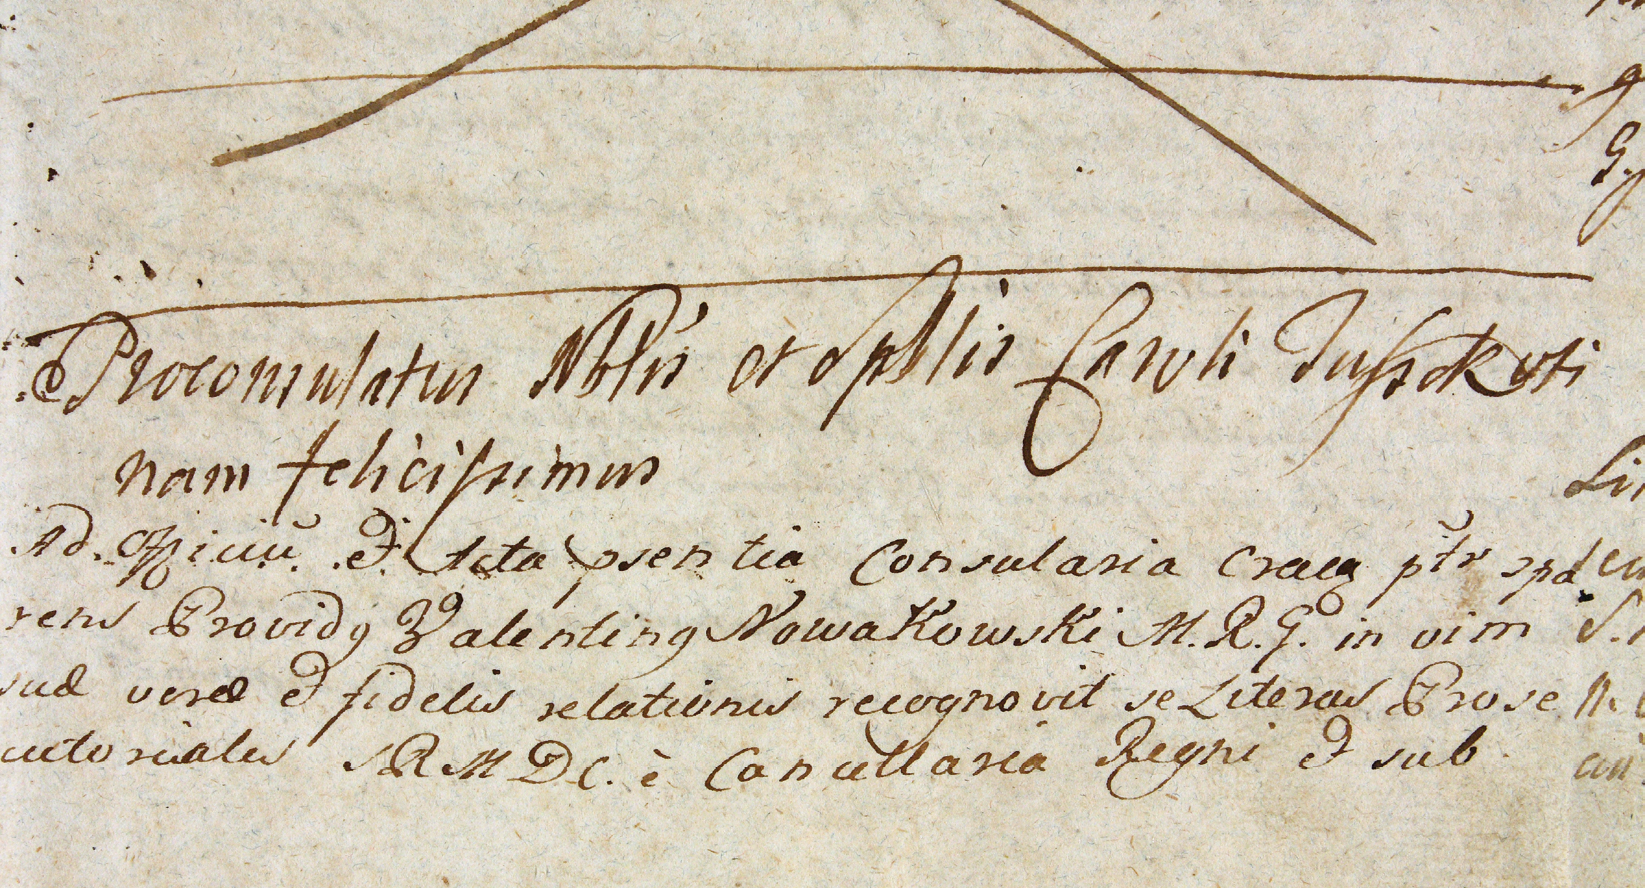 Proconsulatus Nblis et Spblis Caroli
nam felicissimus
Ad Officiũ et Acta psentia Consularia Crac ptr spa
rens Providg Valenting Nowakowski M.R.G. in vim
suæ veræ et fidelis relationis recognovit se Literas Prose
cutoriales SRMDC. è Cancellaria Regni et sub